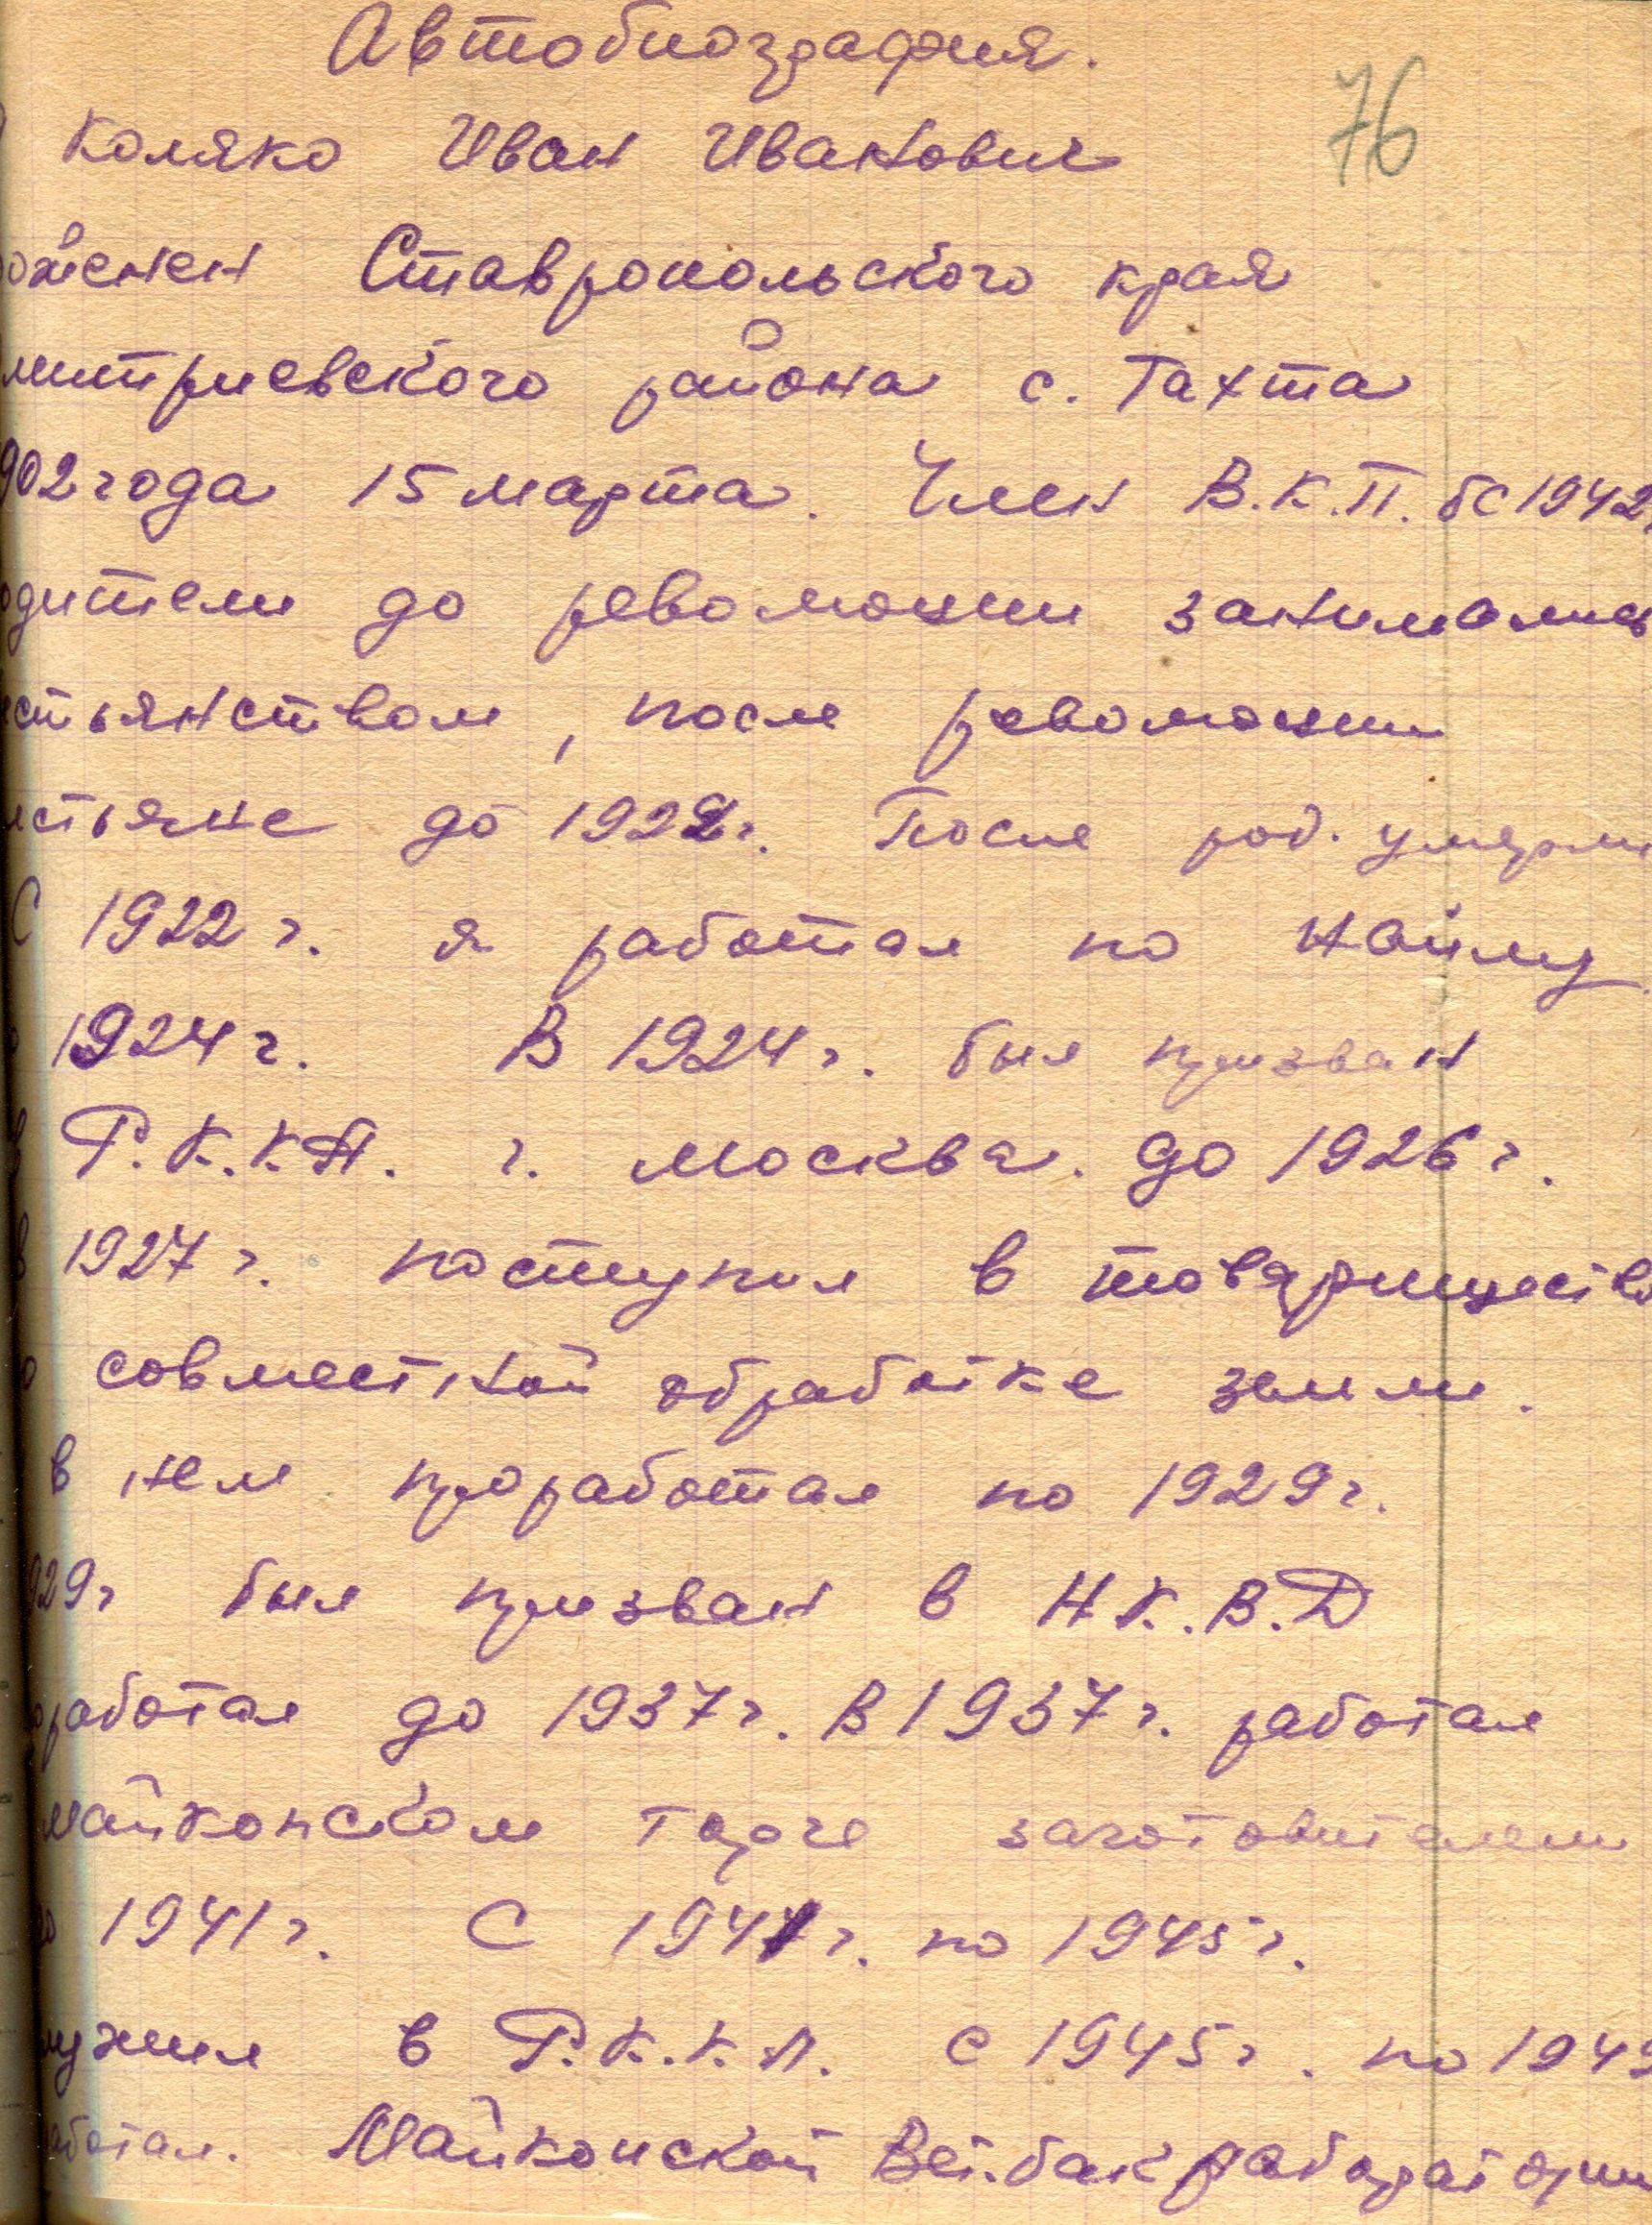 Автобиография.
76
Коляко Иван Иванович
роженен Ставропольского края
митриевского района с. Тахта
902 года 15 марта. Член В.К.П.б с 1942
одители до революции занимались
естьянством, после революции
естьяне до 1922г. После род. умерли
С 1922 г. я работал по найму
1924 г. В 1924 г. был призван
в Р.К.К.А. г. Москва. до 1926 г.
в 1927 г. поступил в товарищество
о совместной обработке земли.
в нем проработал по 1929 г.
929г был призван в Н К.В.Д
оработал до 1937 г. В 1937 г. работал
майкопском торге заготовителем
о 1941 г. С 1941 г. по 1945 г.
лужил в Р.К.К.А. с 1945 г. по 1949
аботал. Майкопской Вет.бак работатории